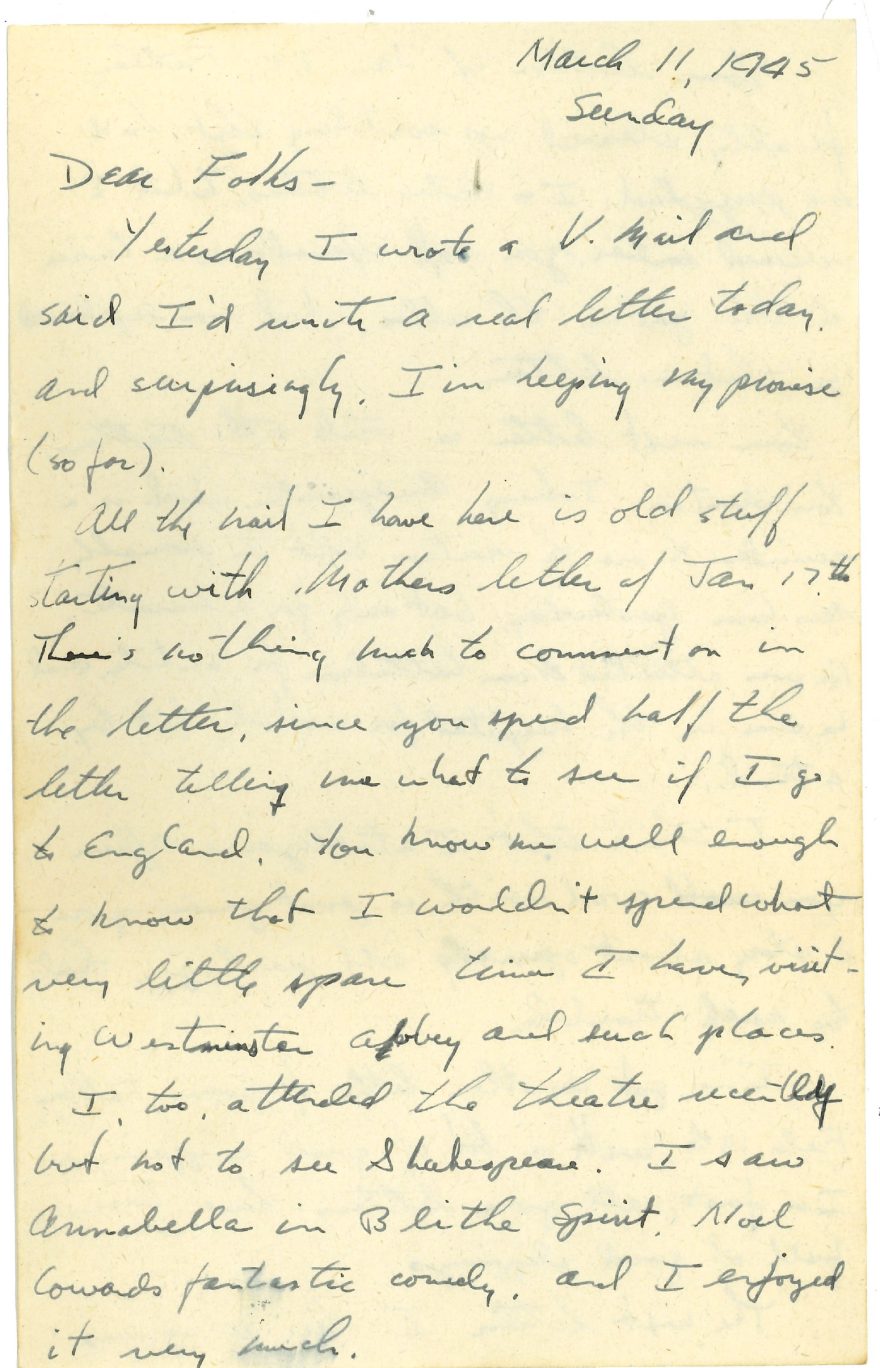 March 11, 1945
Sunday
Dear Folks-
Yesterday I wrote a V. Mail and
said I'd write a real letter today.
and surprisingly, I'm keeping my promise
(so far).
All the mail I have here is old stuff
starting with Mothers letter of Jan 17th.
There's nothing much to comment on in
the letter, since you spend half the
letter telling me what to see if I go
to England. You know me well enough
to know that I wouldn't spend what
very little spare time I have, visit-
ing Westminster abbey and such places.
I, too, attended the theatre recently
but not to see Shakespeare. I saw
Annabella in Blithe Spirit, Noel
Cowards fantastic comedy, and I enjoyed
it very much.